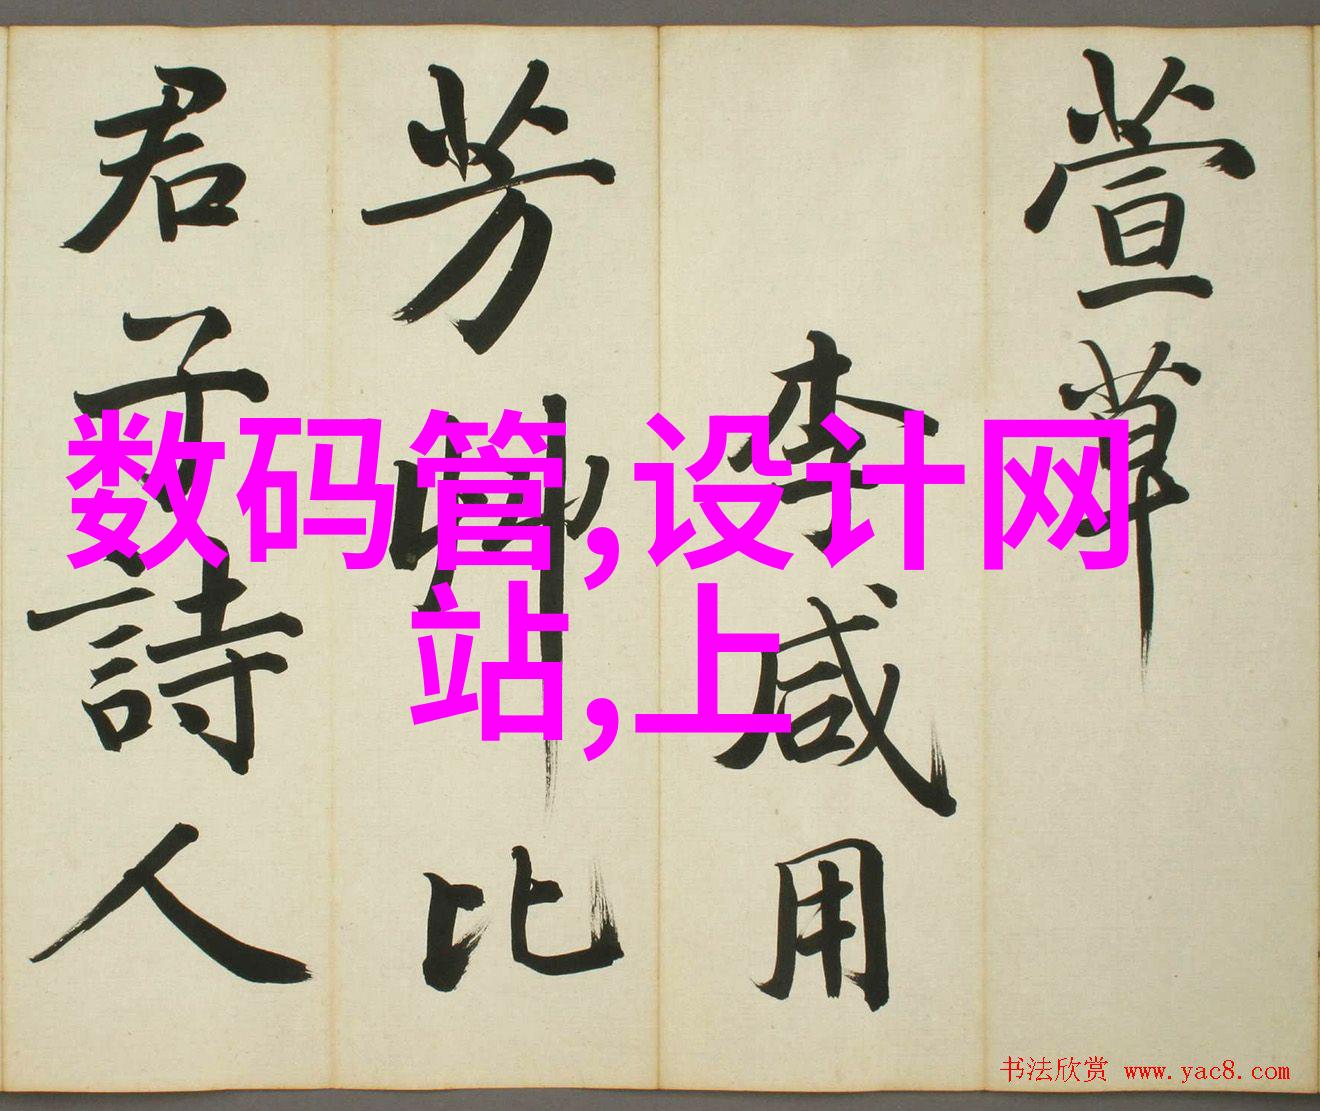 萱草
李咸用
芳艸比
君子詩人
数码管,设计网
站,上
书法欣赏 www.yac8.com